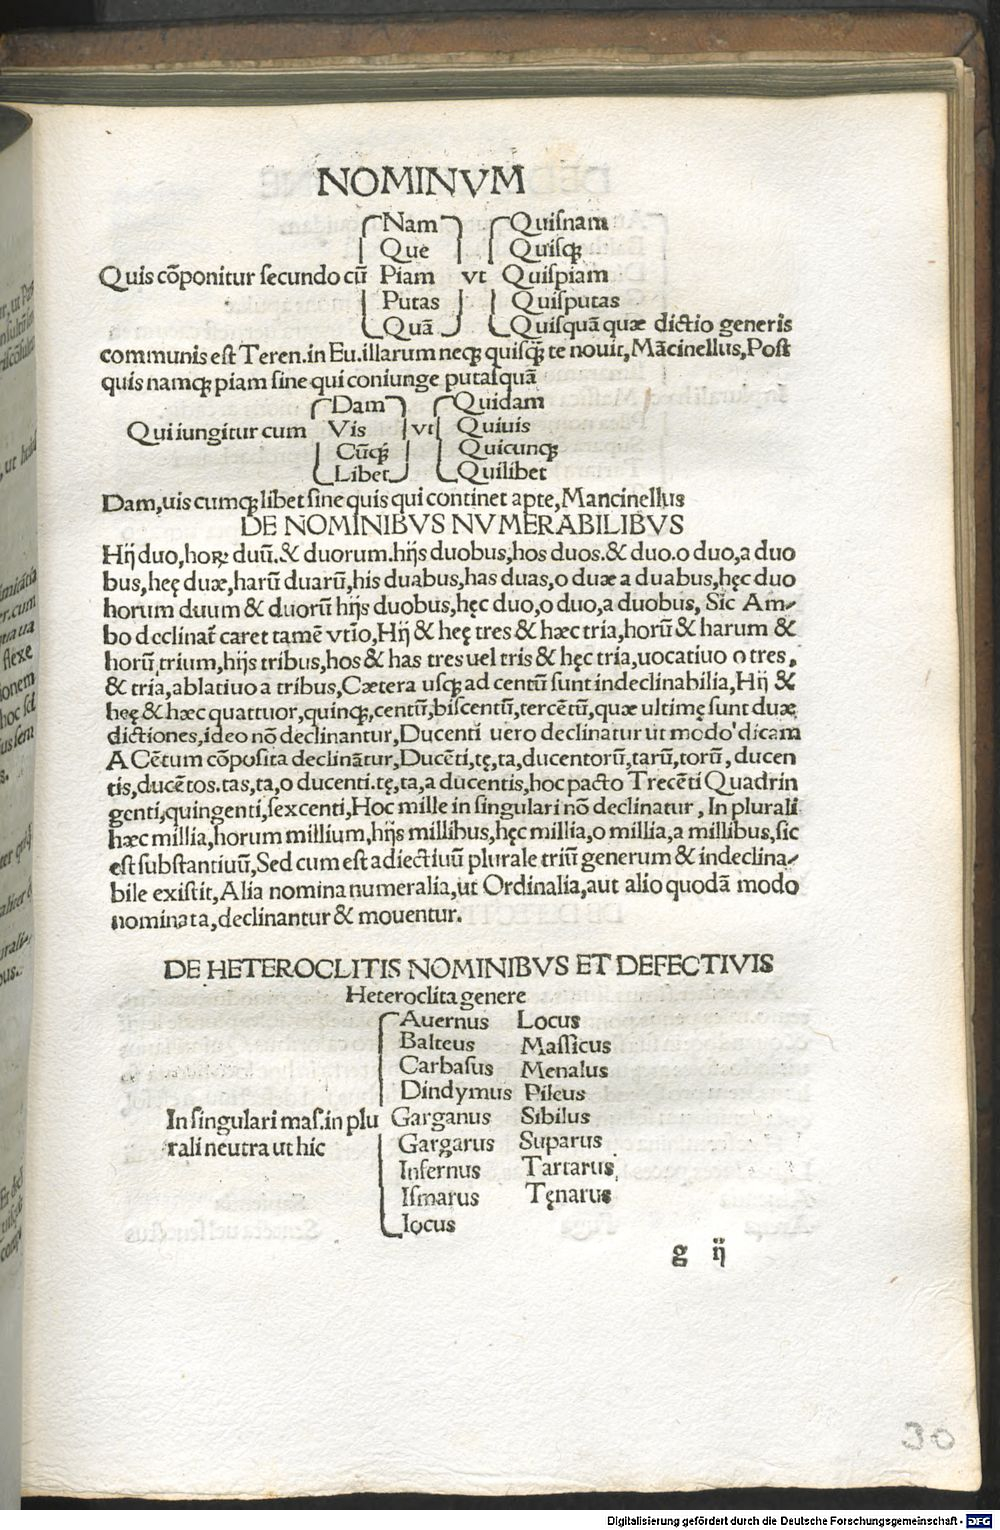 NOMINVM
Nam Quisnam
Que Quisq̃
Quis cõponitur secundo cũ Piam vt Quispiam
Putas Quisputas
Quã Quisquã quæ dictio generis
communis est Teren. in Eu. illarum neqꝫ quisq̃ꝫ te nouit, Mãcinellus, Post
quis namqꝫ piam sine qui coniunge putasquã
Dam Quidam
Qui iungitur cum Vis vt Quiuis
Cũqꝫ Quicunqꝫ
Libet Quilibet
Dam, uis cumqꝫ libet sine quis qui continet apte, Mancinellus
DE NOMINIBVS NVMERABILIBVS
Hij duo, hoꝝ duũ. & duorum. hijs duobus, hos duos. & duo. o duo, a duo
bus, heę duæ, harũ duarũ, his duabus, has duas, o duæ a duabus, hęc duo
horum duum & duorũ hijs duobus, hęc duo, o duo, a duobus, Sic Am-
bo declinat̃ caret tamẽ vtĩo, Hij & heę tres & hæc tria, horũ & harum &
horũ, trium, hijs tribus, hos & has tres uel tris & hęc tria, uocatiuo o tres,
& tria, ablatiuo a tribus, Cætera usqꝫ ad centũ sunt indeclinabilia, Hij &
heę & hæc quattuor, quinqꝫ, centũ, biscentũ, tercẽtũ, quæ ultimę sunt duæ
dictiones, ideo nõ declinantur, Ducenti uero declinatur ut modo dicam
A Cẽtum cõposita declinãtur, Ducẽti, tę, ta, ducentorũ, tarũ, torũ, ducen
tis, ducẽtos. tas, ta, o ducenti. tę, ta, a ducentis, hoc pacto Trecẽti Quadrin
genti, quingenti, sexcenti, Hoc mille in singulari nõ declinatur, In plurali
hæc millia, horum millium, hijs millibus, hęc millia, o millia, a millibus, sic
est substantiuũ, Sed cum est adiectiuũ plurale triũ generum & indeclina-
bile existit, Alia nomina numeralia, ut Ordinalia, aut alio quodã modo
nominata, declinantur & mouentur.
DE HETEROCLITIS NOMINIBVS ET DEFECTIVIS
Heteroclita genere
Auernus Locus
Balteus Massicus
Carbasus Menalus
Dindymus Pileus
In singulari mas. in plu Garganus Sibilus
rali neutra ut hic Gargarus Suparus
Infernus Tartarus
Ismarus Tęnarus
Iocus
g ij
30
Digitalisierung gefördert durch die Deutsche Forschungsgemeinschaft - DFG